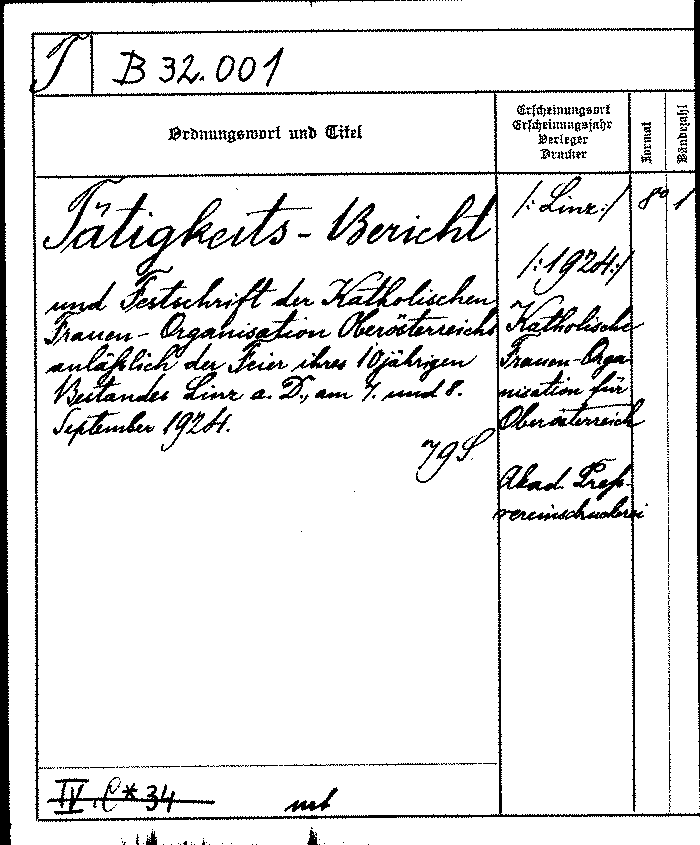 T B 32.001
Ordnungswort und Titel
Erscheinungsort
Erscheinungsjahr
Verleger
Drucker
Format
Bändezahl
Tätigkeits-Bericht
und Festschrift der Katholischen
Frauen-Organisation Oberösterreichs
anläßlich der Feier ihres 10jährigen
Bestandes Linz a. D., am 7. und 8.
September 1924.
79 S.
/: Linz :/
/: 1924 :/
Katholische
Frauen-Orga
nisation für
Oberösterreich
Akad. Preß-
vereinsdruckerei
8°
1
IV. C* 34